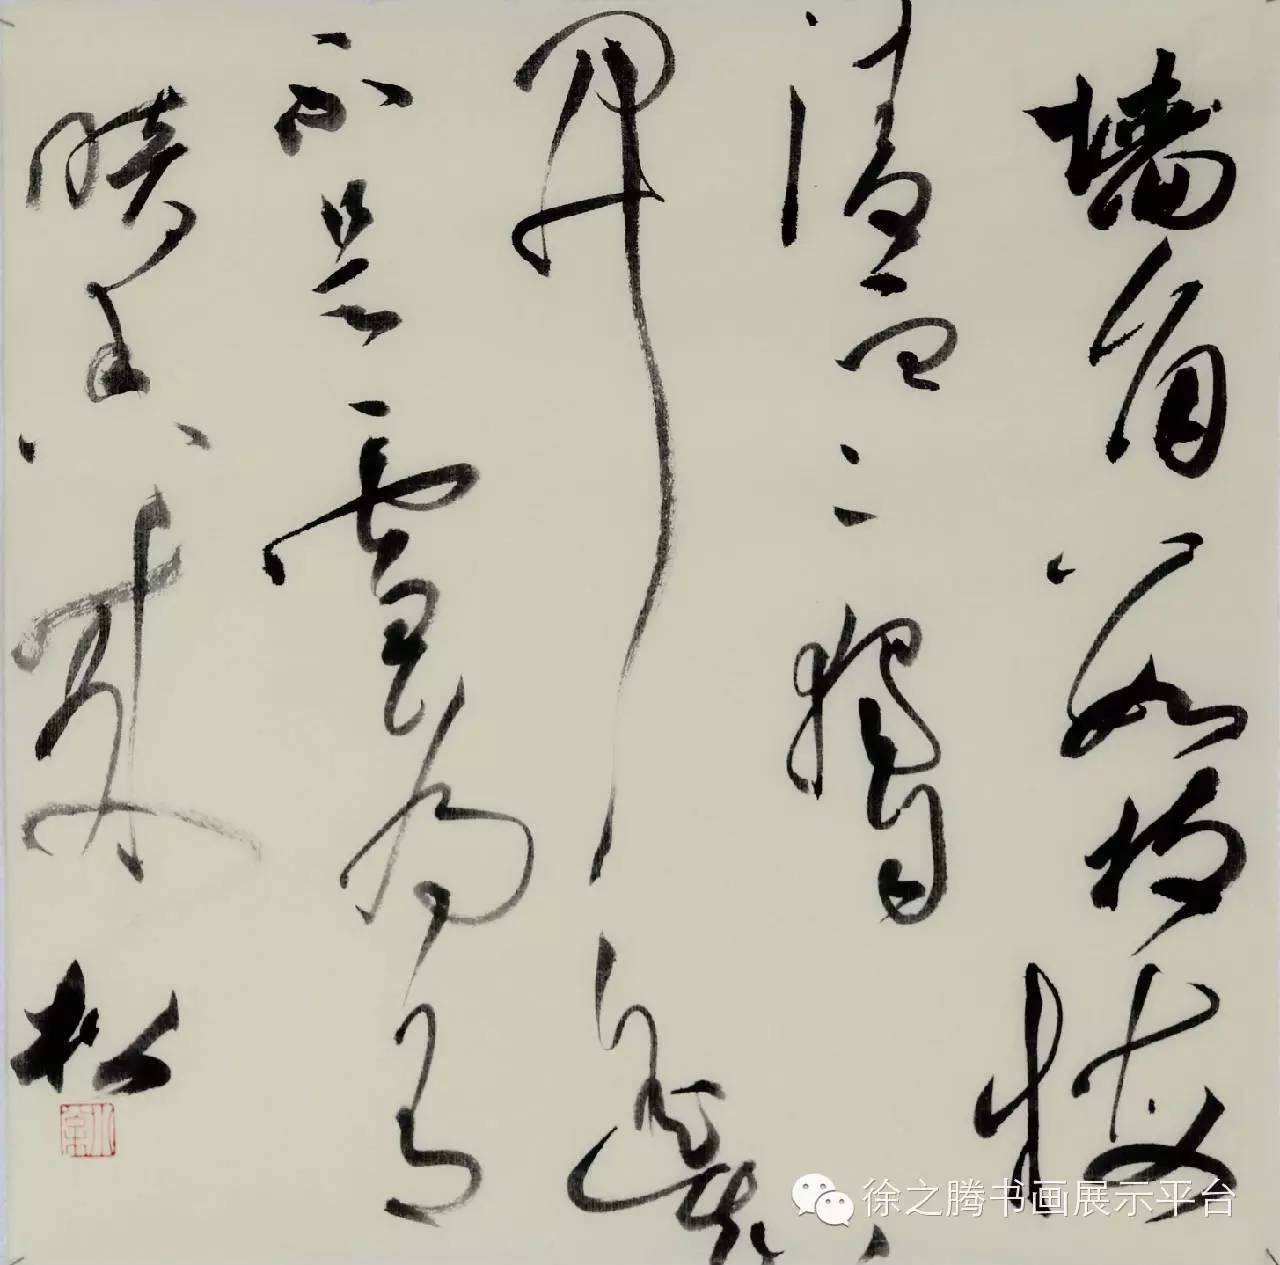 墙角数枝梅
凌寒独自
开遥知
不是雪为有
暗香来 松
徐之腾书画展示平台